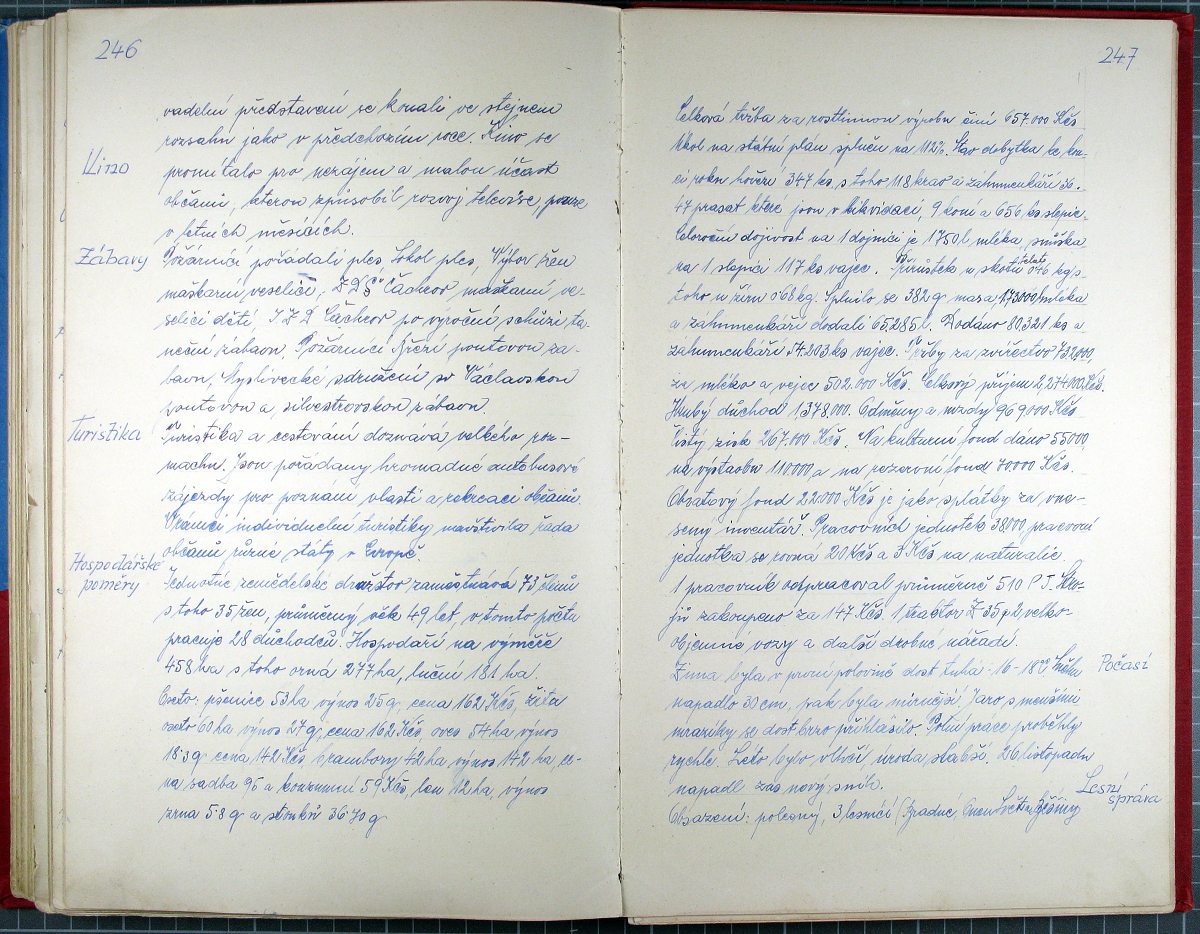 246
vadelní představení se konali ve stejném
rozsahu jako v předchozím roce. Kino se
Kino
promítalo pro nezájem a malou účast
občanů, kterou způsobil rozvoj televise, pouze
v letních měsících.
Zábavy
Požárníci pořádali ples, Sokol ples, Výbor žen
maškarní veselici, ZDŠ Čachrov maškarní ve-
selici dětí, JZD Čachrov po výroční schůzi ta-
neční zábavu, Požárníci pouťovou zá-
bavu, Myslivecké sdružení sv Václavskou
pouťovou a silvestrovskou zábavu.
Turistika
Turistika a cestování doznává velkého roz-
machu. Jsou pořádány hromadné autobusové
zájezdy pro poznání vlasti a rekreaci občanů.
V rámci individuelní turistiky navštívila řada
občanů různé státy v Evropě.
Hospodářské
poměry
Jednotné zemědělské družstvo zaměstnává 73 členů
s toho 35 žen, průměrný věk 49 let, v tomto počtu
pracuje 28 důchodců. Hospodaří na výměře
458 ha s toho orná 277 ha, luční 181 ha.
Oseto: pšenice 53 ha výnos 25 q, cena 162 Kčs, žita
oseto 60 ha, výnos 27 q, cena 162 Kčs, oves 54 ha, výnos
18·3 q cena 142 Kčs brambory 42 ha výnos 142 ha, ce-
na sadba 95 a konzumní 59 Kčs, len 12 ha, výnos
zrna 5·8 q a stonků 36·70 q
247
Celková tržba za rostlinnou výrobu činí 657.000 Kčs
Úkol na státní plán splněn na 112%. Stav dobytka ke kon-
ci roku hovězí 347 ks, s toho 118 krav a záhumenkáři 36.
47 prasat které jsou v likvidaci, 9 koní a 656 ks slepic.
Celoroční dojivost na 1 dojnici je 1750 l mléka, snůška
za 1 slepici 117 ks vajec. Přírůstek u skotu telata 0·46 kg, s
toho u žíru 0·68 kg. Splnilo se 382 q masa, 173000 l mléka
a záhumenkáři dodali 65.285 l. Dodáno 80.321 ks a
záhumenkáři 54.203 ks vajec. Tržby za zvířectvo 732.000,
za mléko a vejce 502.000 Kčs. Celkový příjem 2,274.000 Kčs.
Hrubý důchod 1,378.000. Odměny a mzdy 969.000 Kčs
čistý zisk 267.000 Kčs. Na kulturní fond dáno 55000,
na výstavbu 110000, a na rezervní fond 70000 Kčs.
Obratový fond 22.000 Kčs je jako splátky za vne-
sený inventář. Pracovních jednotek 38.000 pracovní
jednotka se rovná 20 Kčs a 3 Kčs na naturalie.
1 pracovník odpracoval průměrně 510 P.J. Stro-
jů zakoupeno za 147 Kčs. 1 traktor Z 35, 2 velko-
objemné vozy a další drobné nářadí.
Počasí
Zima byla v první polovině dost tuhá -16 -18°C Sněhu
napadlo 30 cm, pak byla mírnější. Jaro s menšími
mrazíky se dost brzo přihlásilo. Polní práce proběhly
rychle. Léto bylo vlhčí úroda slabší. 26. listopadu
napadl zas nový sníh.
Lesní
správa
Obsazení: polesný, 3 lesníci